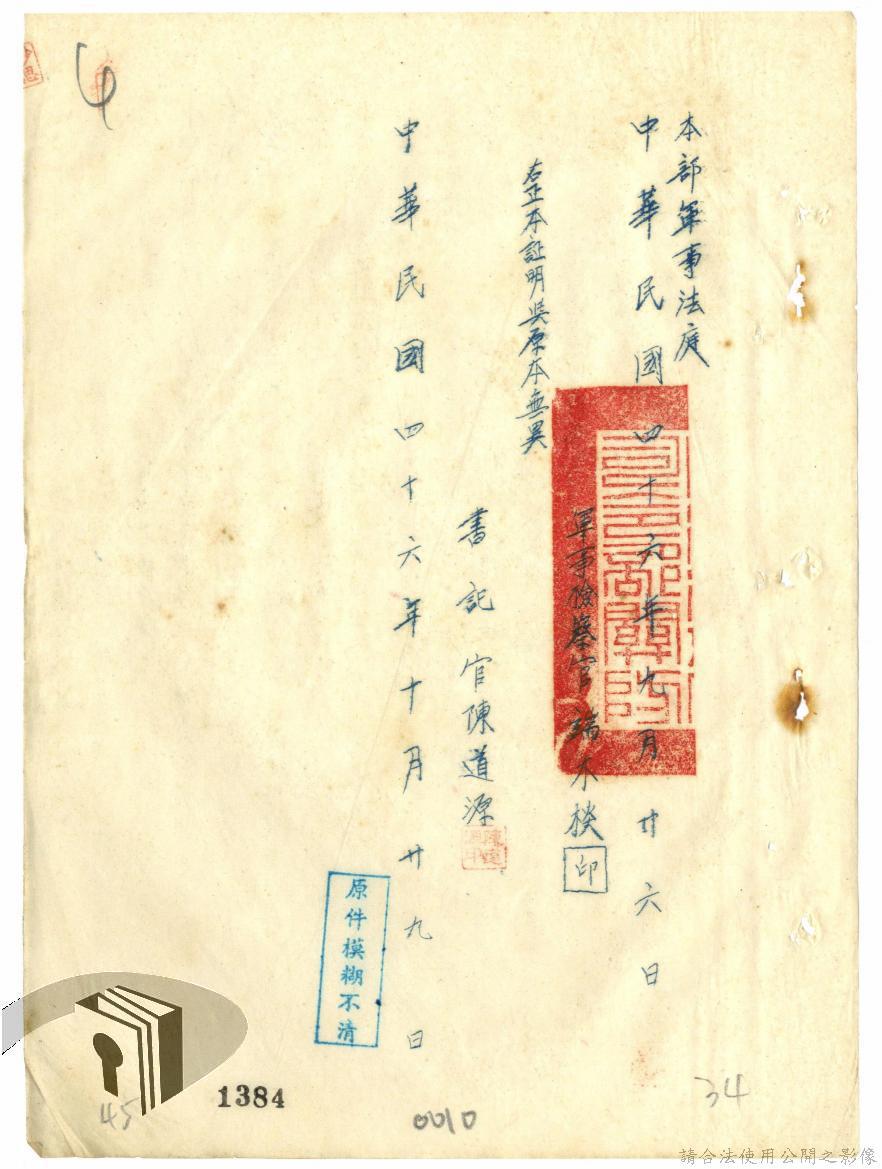 本部軍事法庭
中華民國四十六年九月廿六日
軍事檢察官端木棪
印
右正本証明與原本無異
書記官陳道源
中華民國四十六年十月廿九日
原件模糊不清
1384
45
0010
34
請合法使用公開之影像